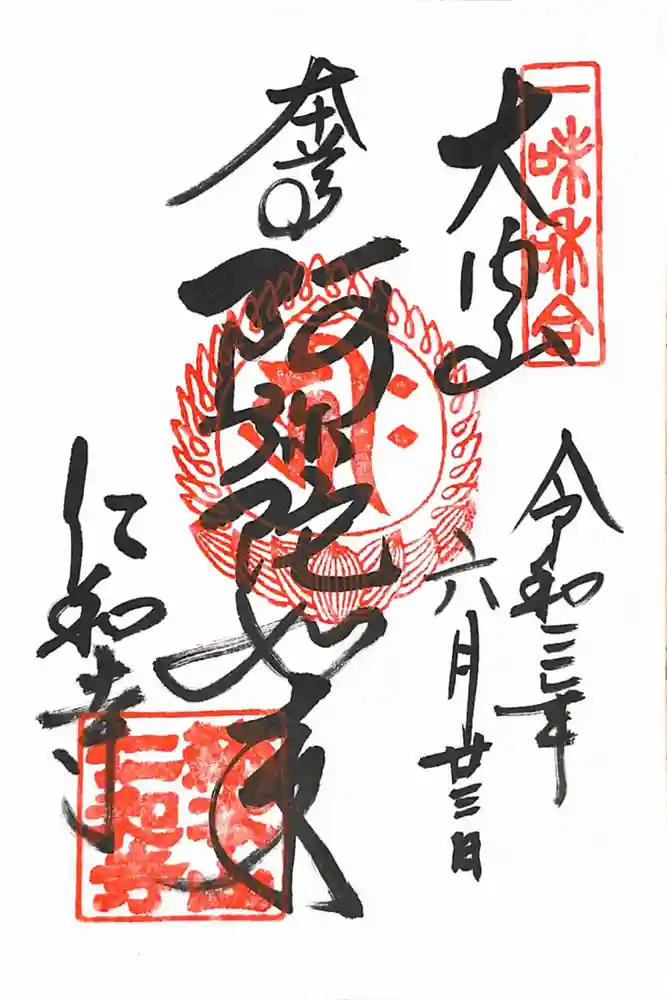 一味和合
大内山
令和三年
六月廿三日
本尊
阿弥陀如来
仁和寺
仁和寺